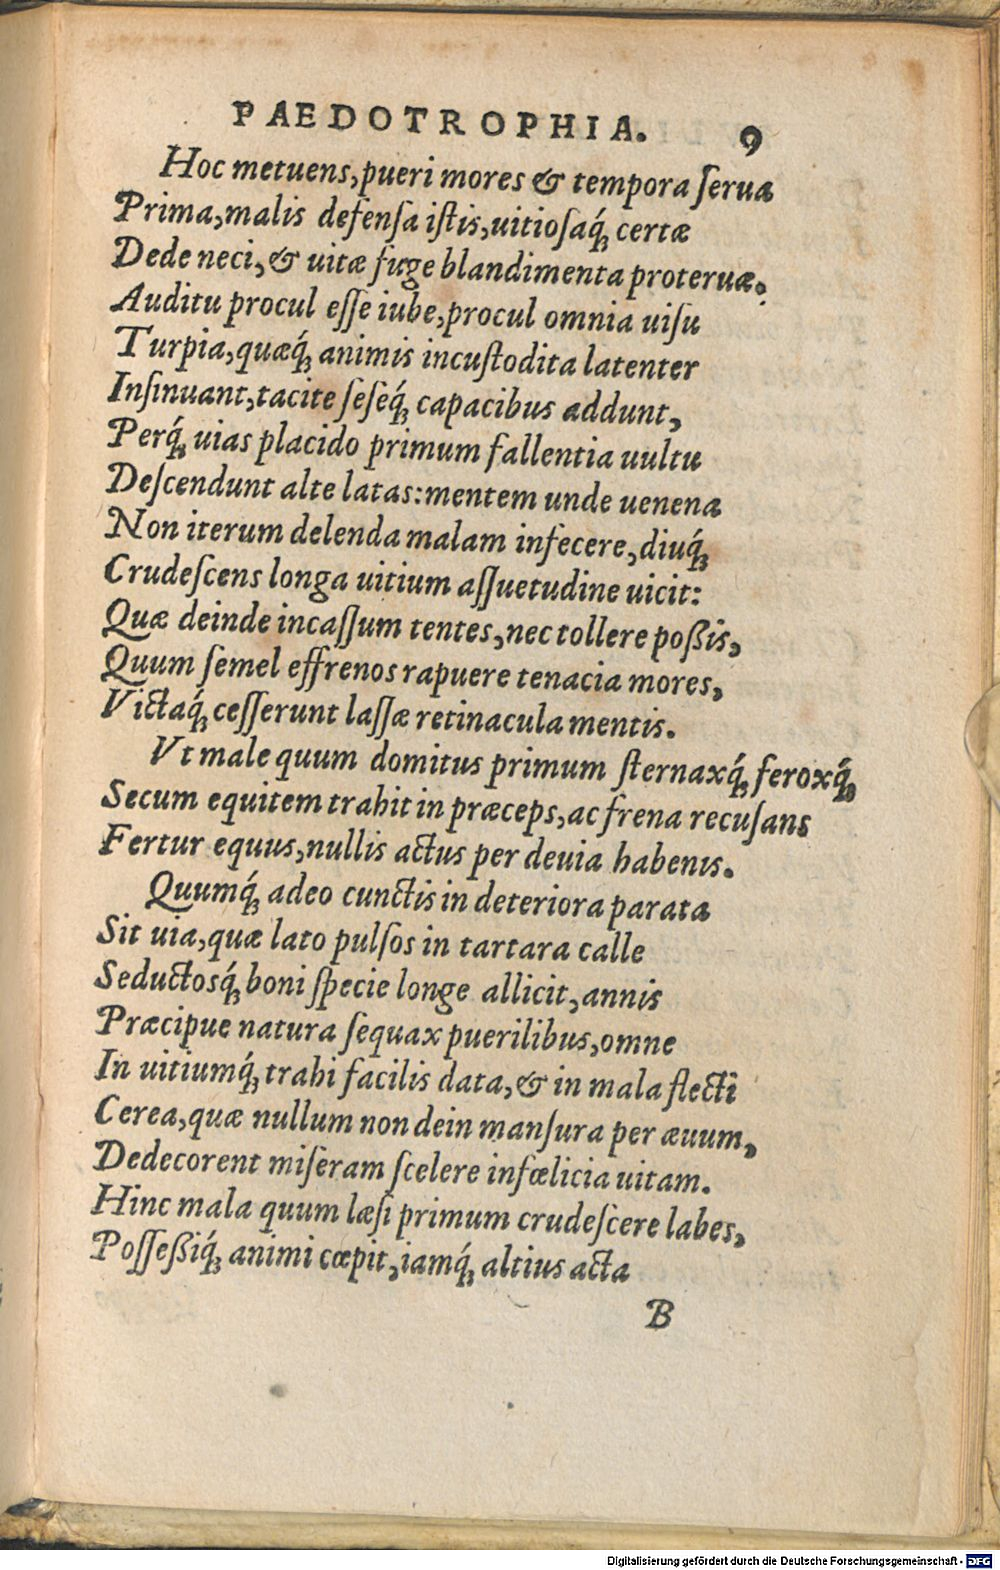 PAEDOTROPHIA. 9
Hoc metuens, pueri mores & tempora ſerua
Prima, malis defenſa iſtis, uitioſaq́; certæ
Dede neci, & uitæ fuge blandimenta proteruæ.
Auditu procul eſſe iube, procul omnia uiſu
Turpia, quæq́; animis incuſtodita latenter
Inſinuant, tacite ſeſeq́; capacibus addunt,
Perq́; uias placido primum fallentia uultu
Deſcendunt alte latas: mentem unde uenena
Non iterum delenda malam infecere, diuq́;
Crudeſcens longa uitium aſſuetudine uicit:
Quæ deinde incaſſum tentes, nec tollere poßis,
Quum ſemel effrenos rapuere tenacia mores,
Victaq́; ceſſerunt laſſæ retinacula mentis.
Vt male quum domitus primum ſternaxq́; feroxq́;
Secum equitem trahit in præceps, ac frena recuſans
Fertur equus, nullis actus per deuia habenis.
Quumq́; adeo cunctis in deteriora parata
Sit uia, quæ lato pulſos in tartara calle
Seductosq́; boni ſpecie longe allicit, annis
Præcipue natura ſequax puerilibus, omne
In uitiumq́; trahi facilis data, & in mala flecti
Cerea, quæ nullum non dein manſura per æuum,
Dedecorent miſeram ſcelere infœlicia uitam.
Hinc mala quum læſi primum crudeſcere labes,
Poſſeßiq́; animi cœpit, iamq́; altius acta
B
Digitalisierung gefördert durch die Deutsche Forschungsgemeinschaft - DFG